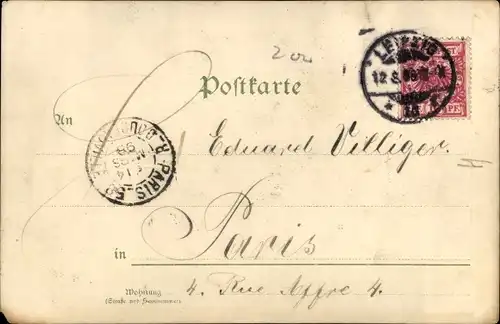 200
Postkarte
LEIPZIG
12.8.98
13
PFE
An
Eduard Villiger.
PARIS 53
in Paris
Wohnung
(Straße und Hausnummer)
4. Rue Affre 4.